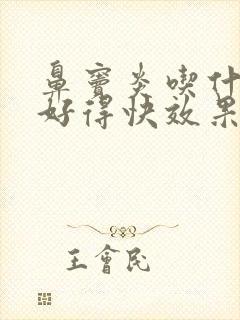 鼻窦炎喫什
好得快效果
王會民